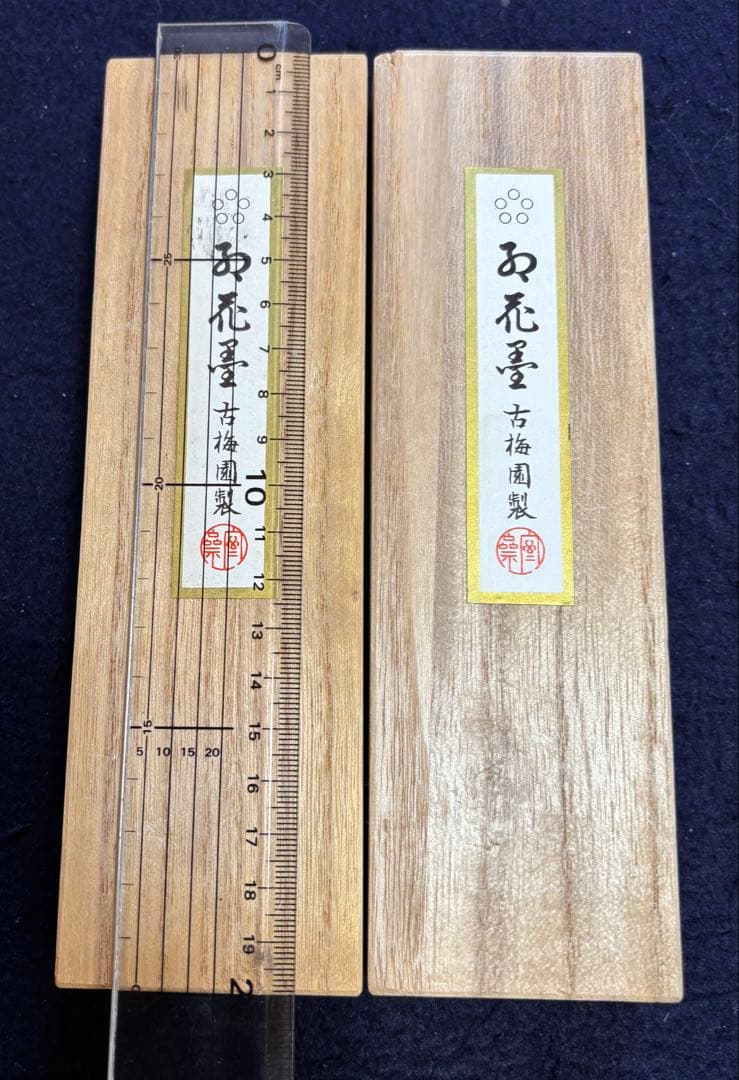 紅花墨
古梅園製
紅花墨
古梅園製
0
cm
1
2
3
4
5
6
7
8
9
10
11
12
13
14
15
16
17
18
19
2
25
20
15
5 10 15 20
0